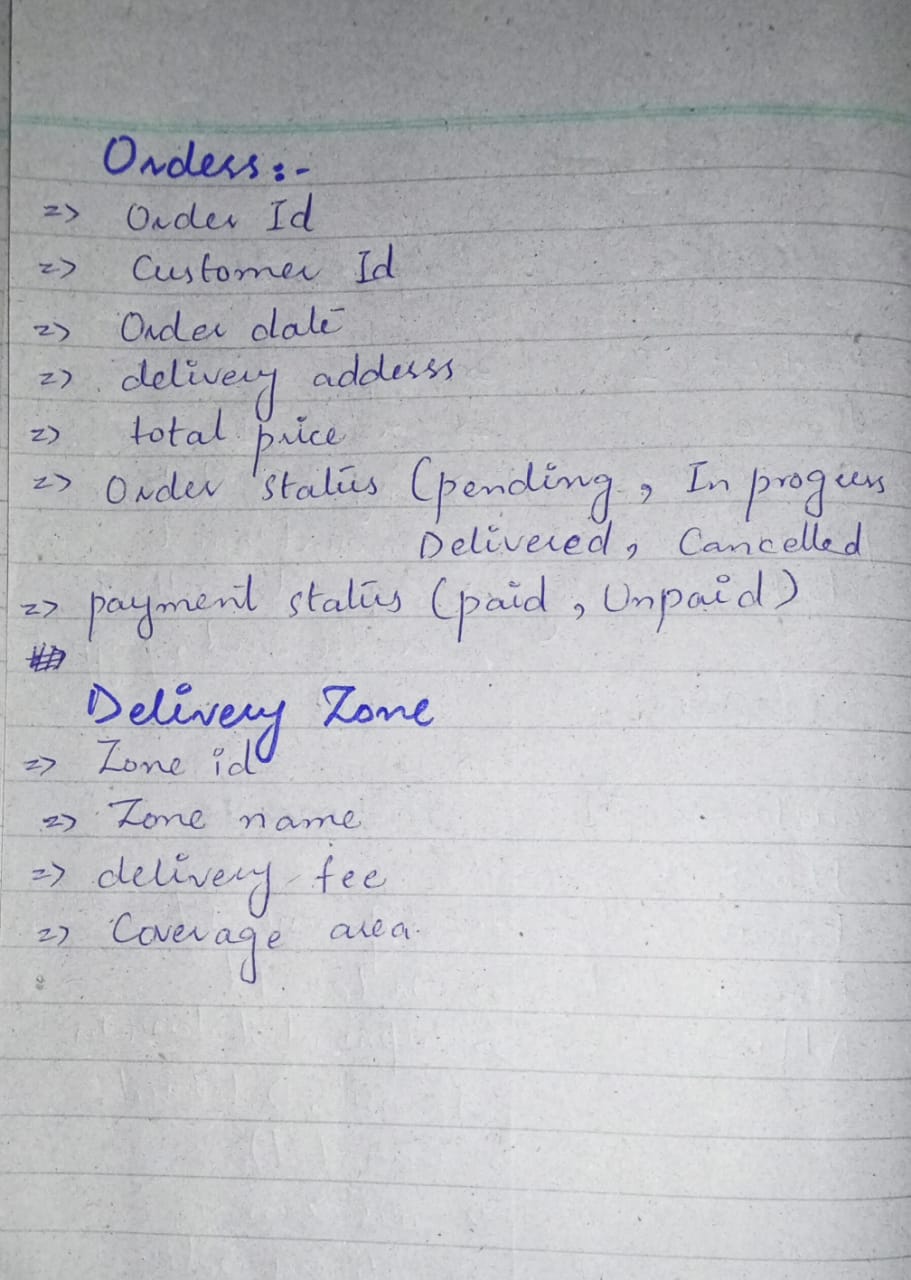 Orders:-
=> Order Id
=> Customer Id
=> Order date
=> delivery address
=> total price
=> Order status (pending, In progress
Delivered, Cancelled
=> payment status (paid, Unpaid)
Delivery Zone
=> Zone id
=> Zone name
=> delivery fee
=> Coverage area.